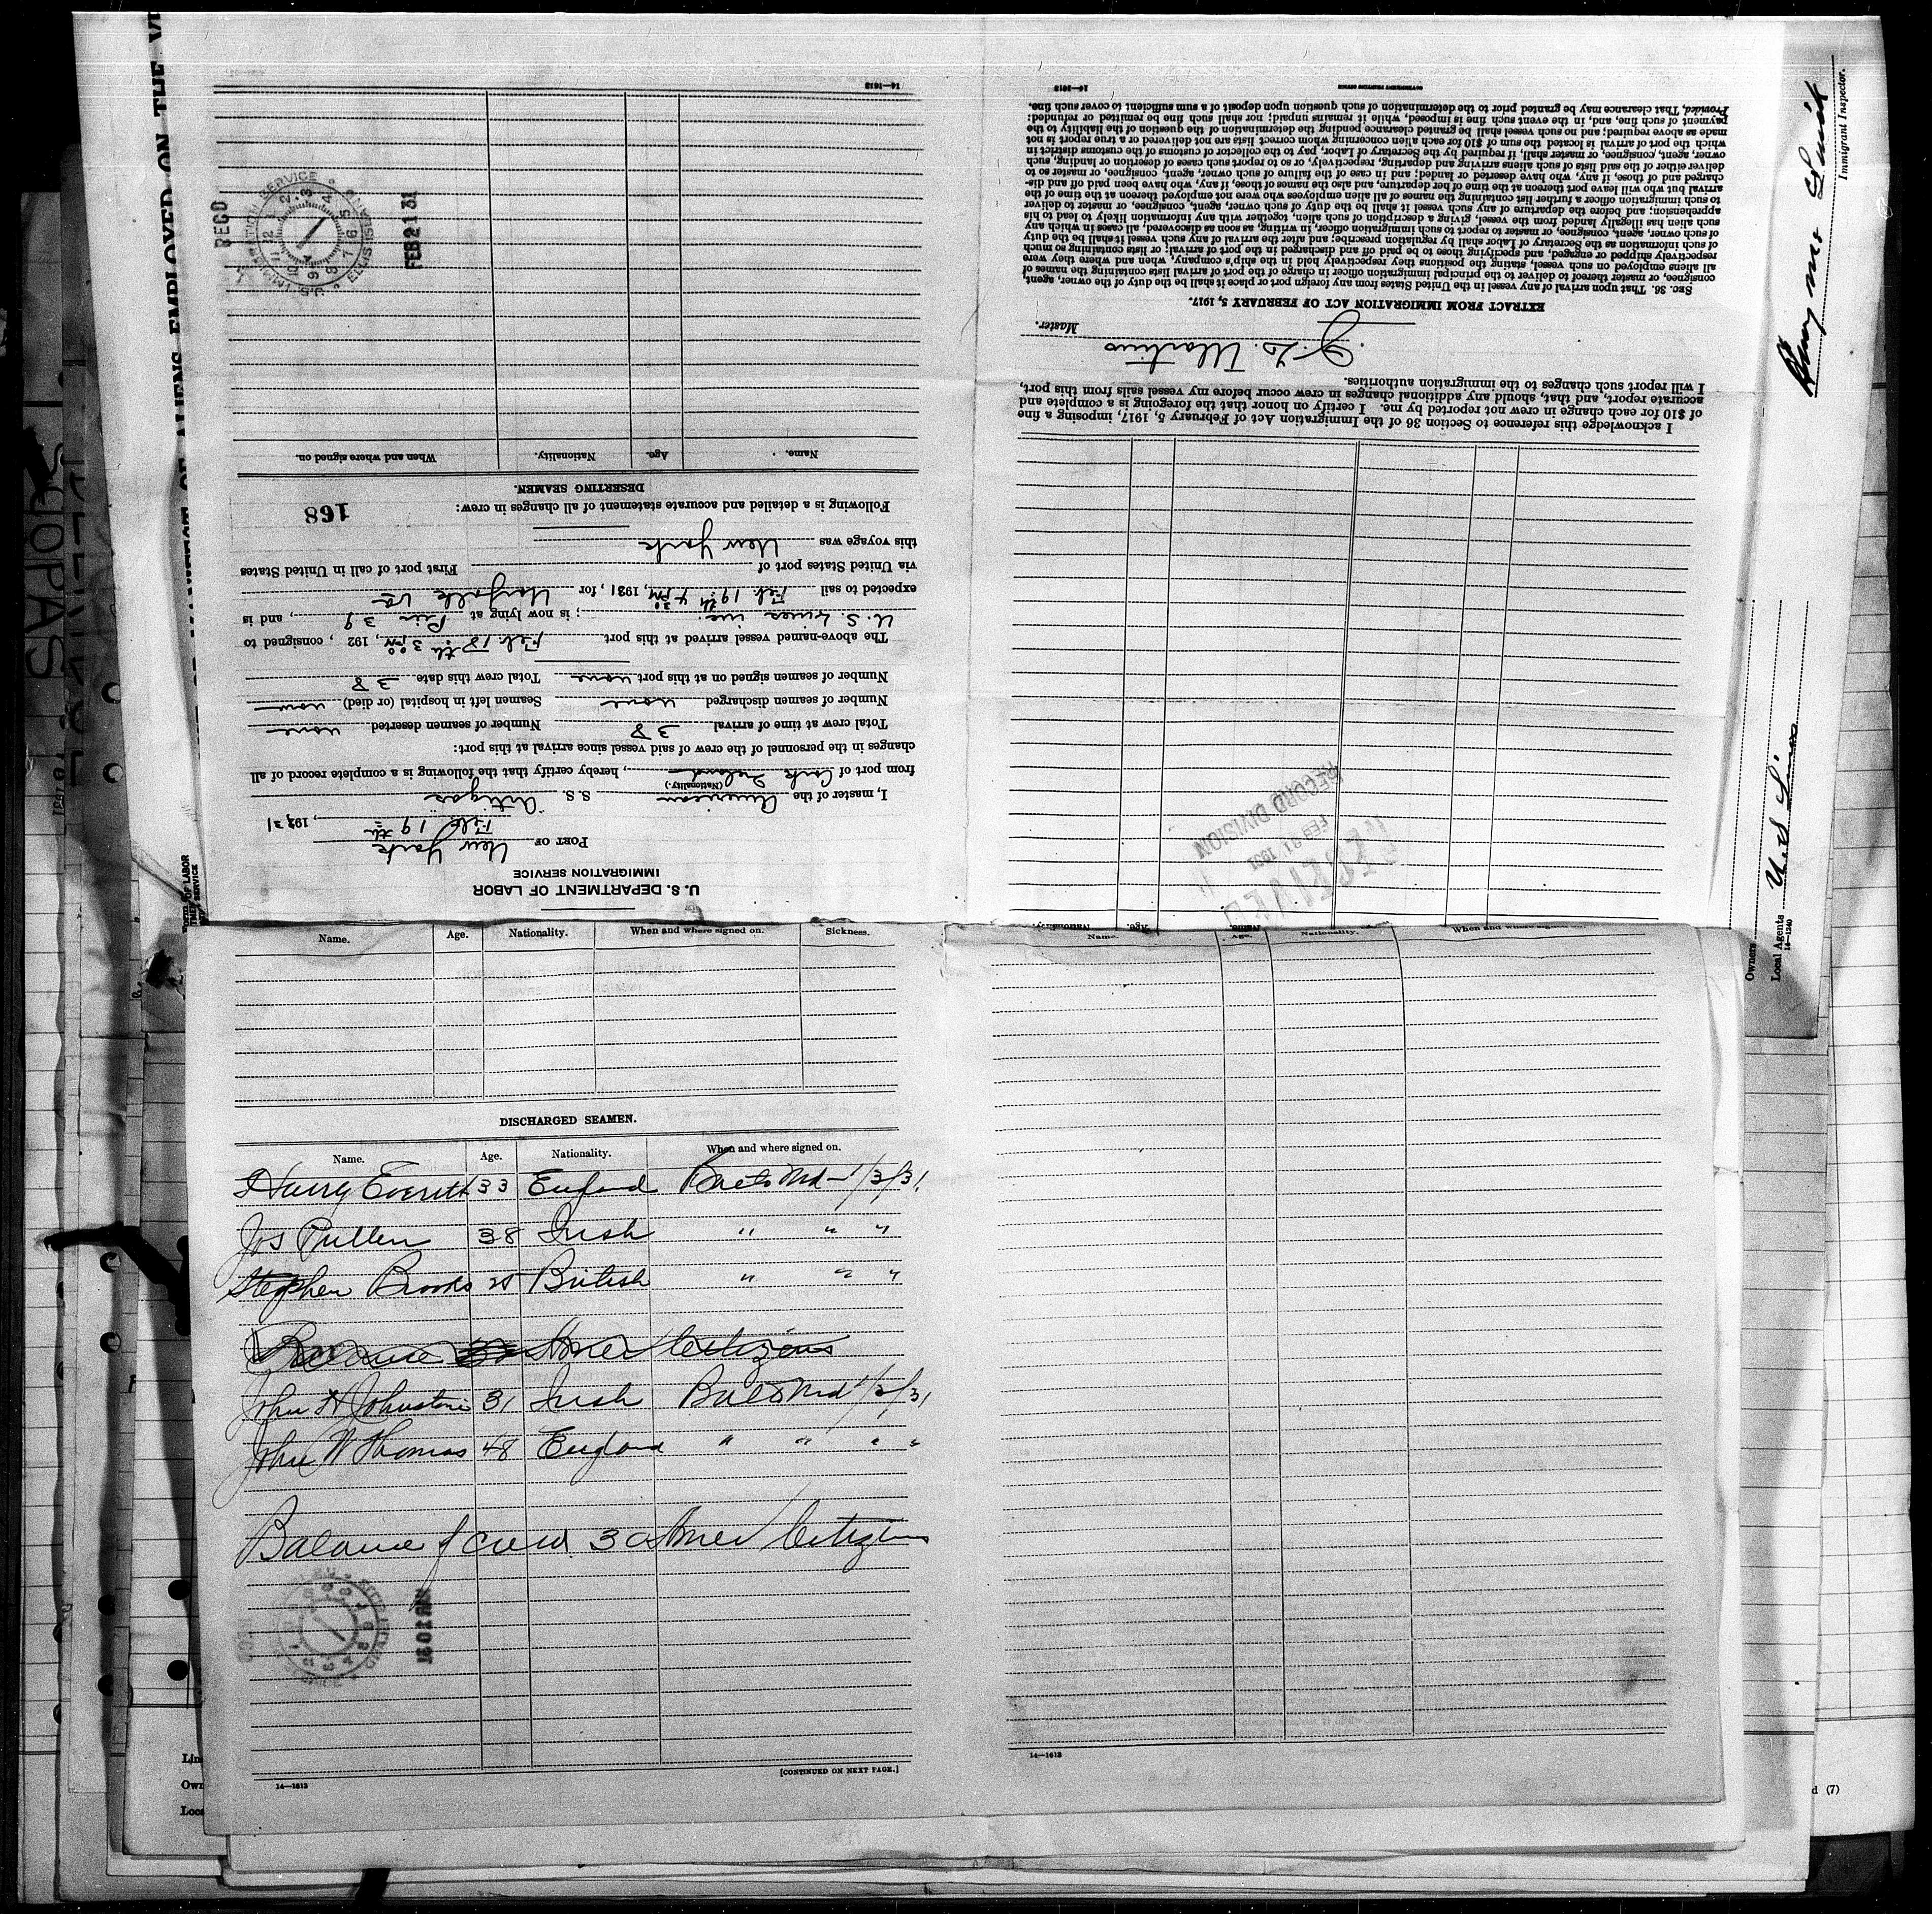 U. S. DEPARTMENT OF LABOR
IMMIGRATION SERVICE
PORT OF New York
Feb. 19th, 1931
I, master of the American S. S. "Artigas"
(Nationality.)
from port of Cork Ireland, hereby certify that the following is a complete record of all
changes in the personnel of the crew of said vessel since arrival at this port:
Total crew at time of arrival 38 Number of seamen deserted none
Number of seamen discharged none Seamen left in hospital (or died) none
Number of seamen signed on at this port none Total crew this date 38
The above-named vessel arrived at this port Feb. 18th 3 00 PM, 192 , consigned to
U. S. Lines inc. ; is now lying at Pier 39, and is
expected to sail Feb. 19th 4 30 PM, 1931, for Norfolk Va
via United States port of First port of call in United States
this voyage was New York
Following is a detailed and accurate statement of all changes in crew:
168
DESERTING SEAMEN.
Name. Age. Nationality. When and where signed on.
RECD
U.S. IMMIGRATION SERVICE
ELLIS ISLAND
FEB 21 31
14—1613
Name. Age. Nationality.
RECEIVED
FEB 21 1931
RECORD DIVISION
I acknowledge this reference to Section 36 of the Immigration Act of February 5, 1917, imposing a fine
of $10 for each change in crew not reported by me. I certify on honor that the foregoing is a complete and
accurate report, and that, should any additional changes in crew occur before my vessel sails from this port,
I will report such changes to the immigration authorities.
Martino
Master.
EXTRACT FROM IMMIGRATION ACT OF FEBRUARY 5, 1917.
SEC. 36. That upon arrival of any vessel in the United States from any foreign port or place it shall be the duty of the owner, agent,
consignee, or master thereof to deliver to the principal immigration officer in charge of the port of arrival lists containing the names of
all aliens employed on such vessel, stating the positions they respectively hold in the ship's company, when and where they were
respectively shipped or engaged, and specifying those to be paid off and discharged in the port of arrival; or lists containing so much
of such information as the Secretary of Labor shall by regulation prescribe; and after the arrival of any such vessel it shall be the duty
of such owner, agent, consignee, or master to report to such immigration officer, in writing, as soon as discovered, all cases in which any
such alien has illegally landed from the vessel, giving a description of such alien, together with any information likely to lead to his
apprehension; and before the departure of any such vessel it shall be the duty of such owner, agent, consignee, or master to deliver
to such immigration officer a further list containing the names of all alien employees who were not employed thereon at the time of the
arrival but who will leave port thereon at the time of her departure, and also the names of those, if any, who have been paid off and dis-
charged and of those, if any, who have deserted or landed; and in case of the failure of such owner, agent, consignee, or master so to
deliver either of the said lists of such aliens arriving and departing, respectively, or so to report such cases of desertion or landing, such
owner, agent, consignee, or master shall, if required by the Secretary of Labor, pay to the collector of customs of the customs district in
which the port of arrival is located the sum of $10 for each alien concerning whom correct lists are not delivered or a true report is not
made as above required; and no such vessel shall be granted clearance pending the determination of the question of the liability to the
payment of such fine, and, in the event such fine is imposed, while it remains unpaid; nor shall such fine be remitted or refunded:
Provided, That clearance may be granted prior to the determination of such question upon deposit of a sum sufficient to cover such fine.
14—1613
GOVERNMENT PRINTING OFFICE
Name. Age. Nationality. When and where signed on. Sickness.
DISCHARGED SEAMEN.
Name. Age. Nationality. When and where signed on.
Harry Everett 33 England Balto Md – 1/3/31
Jos Pullen 38 Irish " " "
Stephen Brooks 25 British " " "
Balance 30 Amer Citizens
John H Johnstone 31 Irish Balto Md 1/3/31
John W Thomas 48 England " " " "
Balance of crew 30 Amer Citizens
14—1613
[CONTINUED ON NEXT PAGE.]
Name. Age. Nationality. When and where signed on.
14—1613
ALIENS EMPLOYED ON THE
Immigrant Inspector.
Owners
Local Agents U. S. Lines
14—1240
Lin
Own
Loca
d (7)